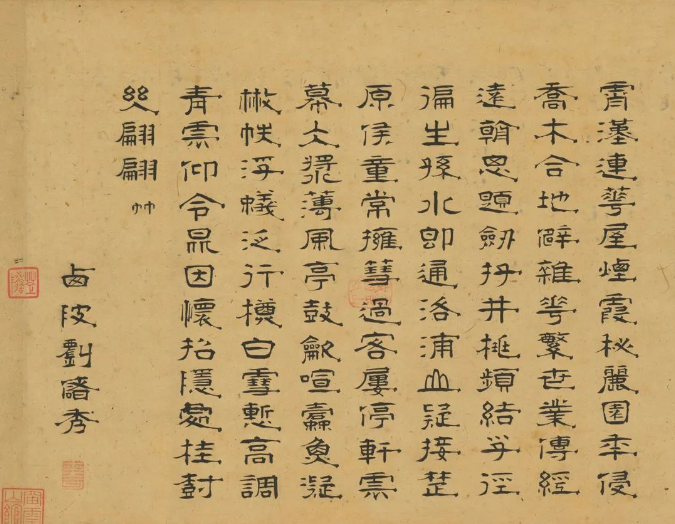 霄漢連華屋煙霞秘麗園平侵
喬木合地僻雜華繁世業傳經
遠朝恩題劍丹井桃頻結子徑
徧生孫水即通洛浦山疑接楚
原侯童常擁篲過客屢停軒雲
幕深薄風亭鼓喧蠹魚凝
帙浮蟻泛行樽白雪慙高調
青雲仰令昆因懷招隱處桂封
翩翩竹
西陂劉儲秀